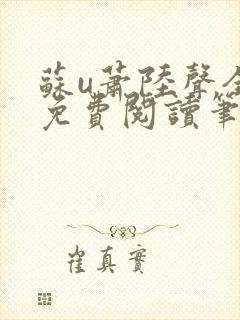 蘇u蕭陸聲全
免費閱讀筆
崔真實